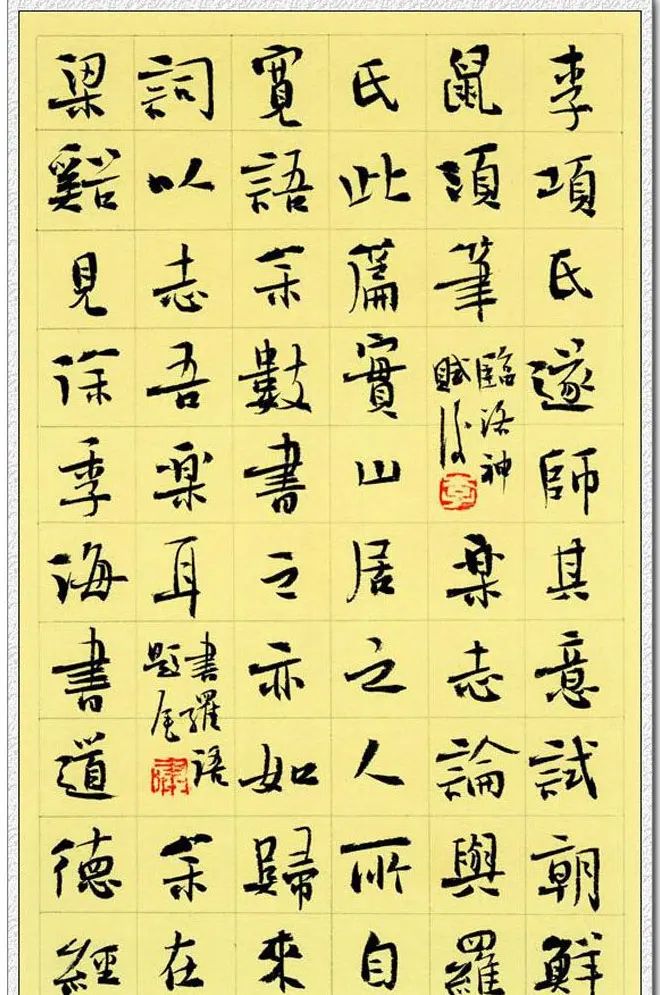 李項氏遂師其意試朝鮮
鼠須筆
臨洛神
賦後
樂志論與羅
氏此篇實山居之人所自
寬語余數書之亦如歸來
詞以志吾樂耳
書羅語
題尾
余在
梁谿見徐季海書道德經